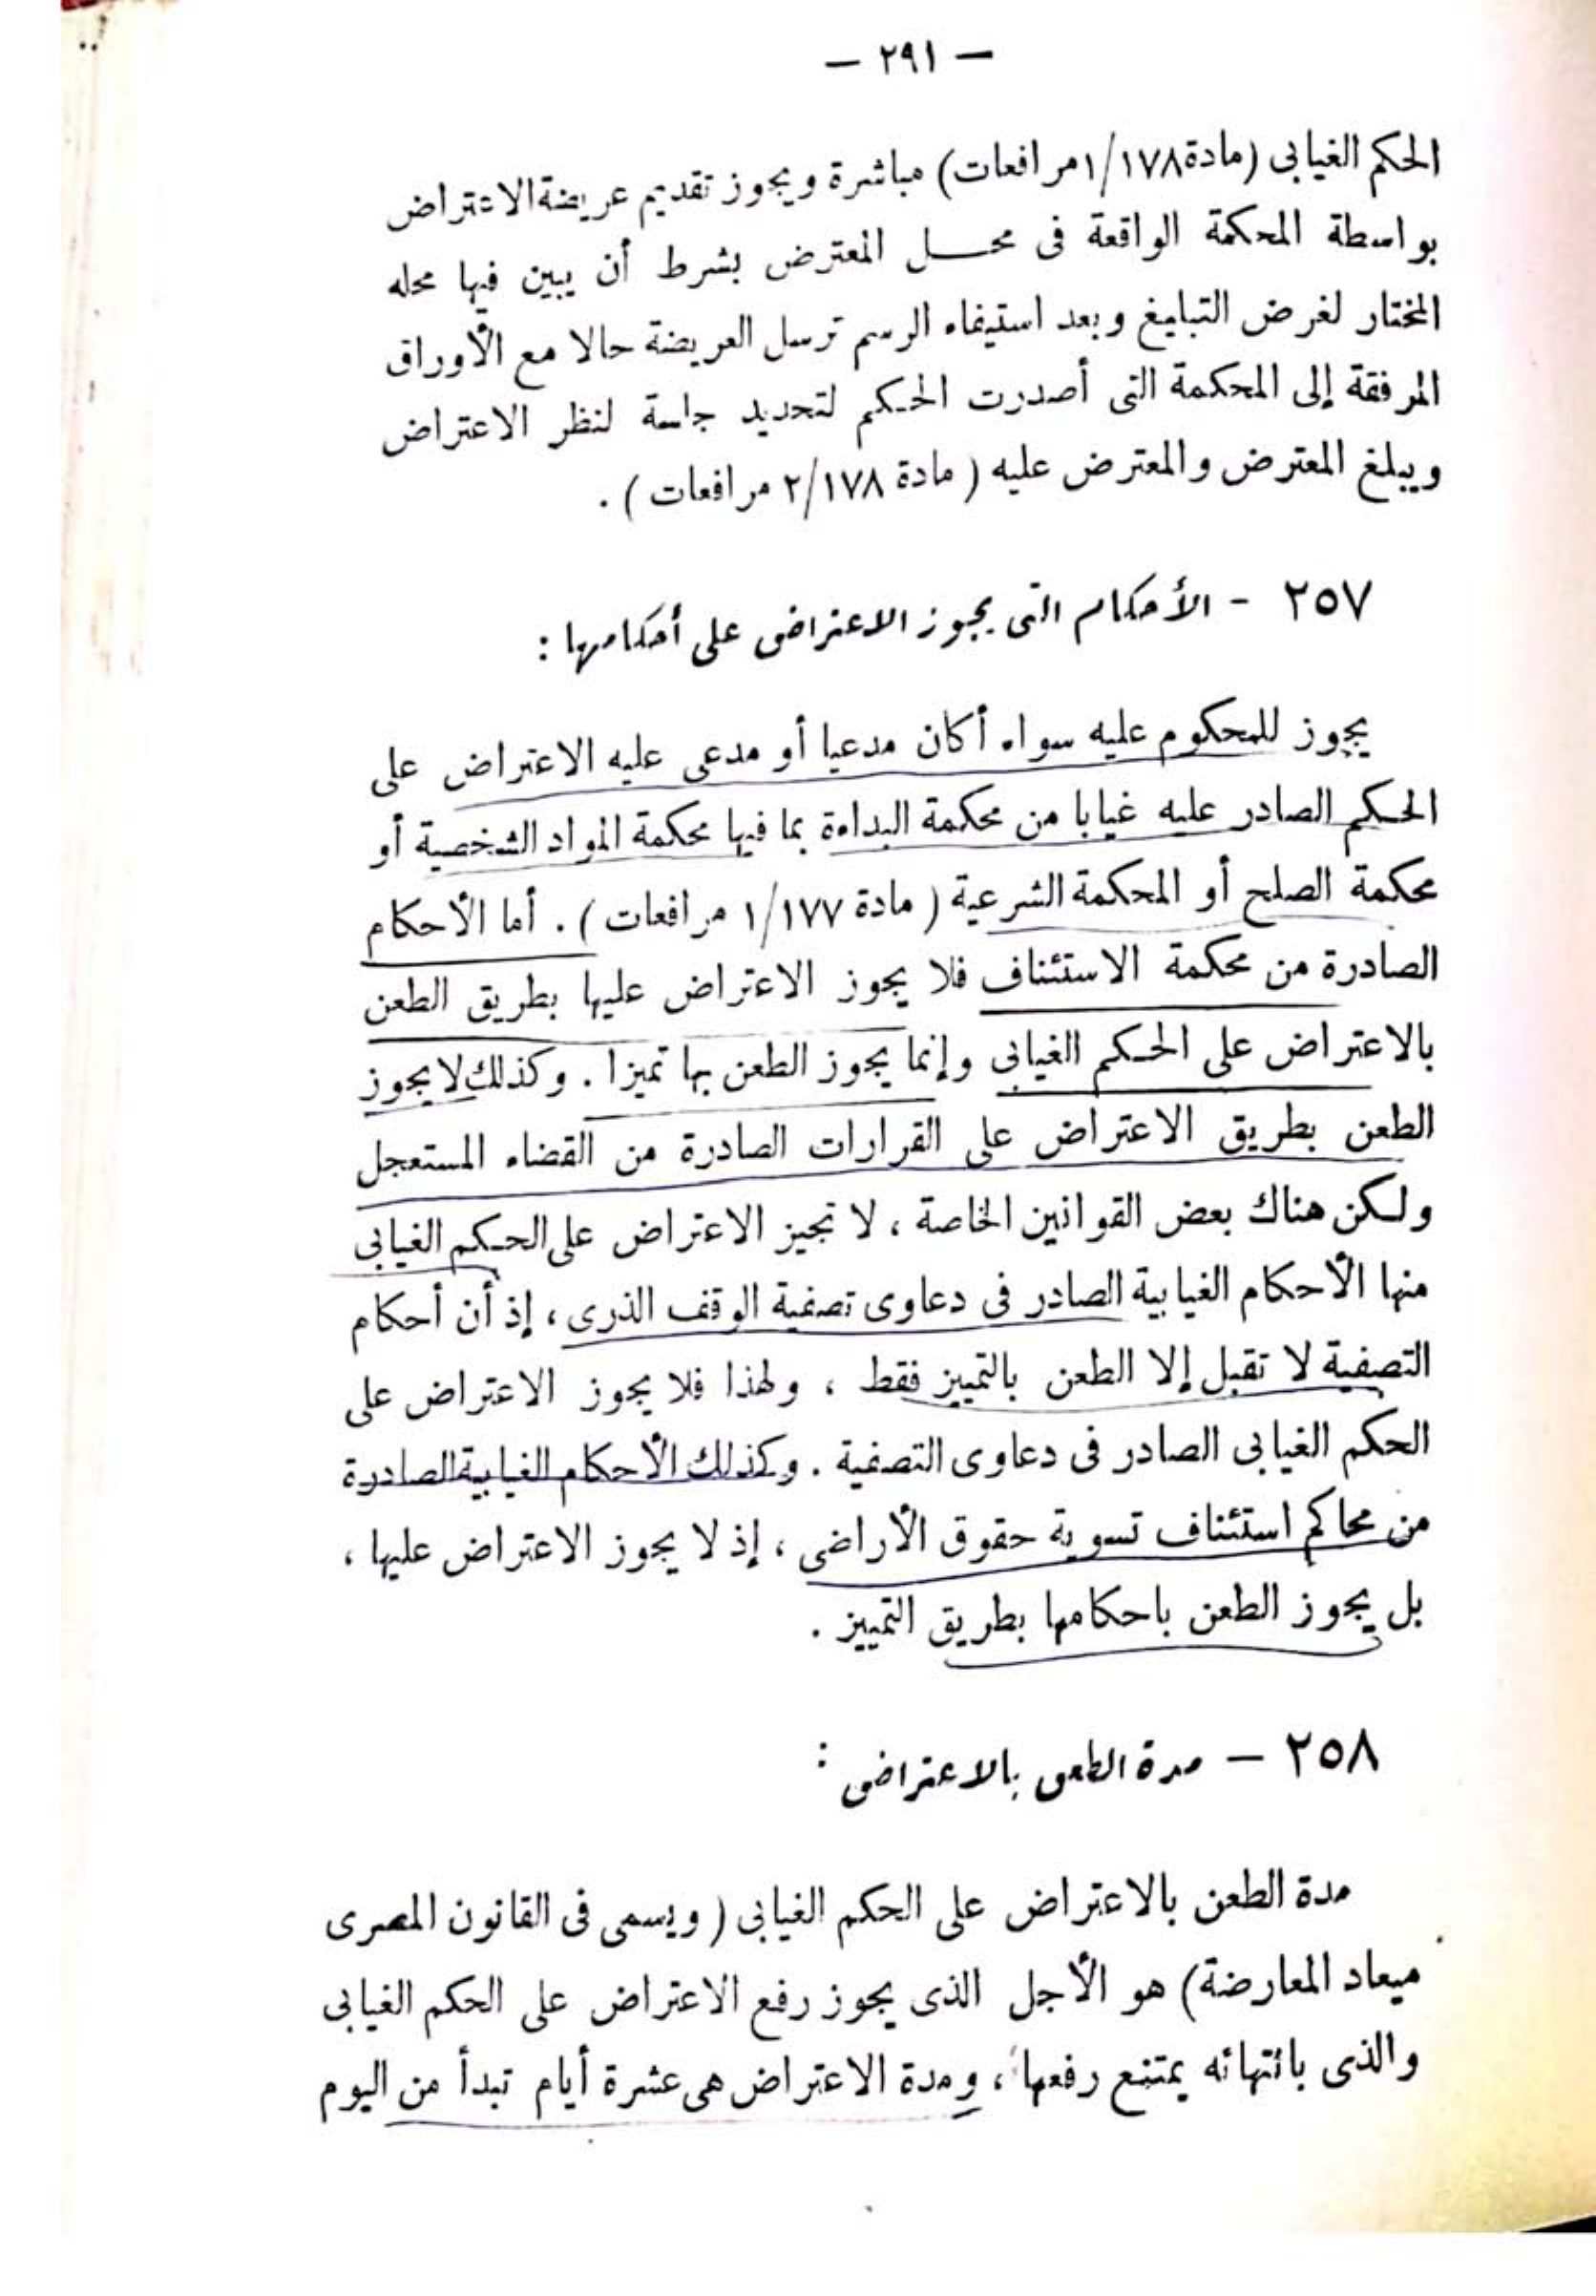 — ٢٩١ —
الحكم الغيابى (مادة ١/١٧٨ مرافعات) مباشرة ويجوز تقديم عريضة الاعتراض
بواسطة المحكمة الواقعة فى محــل المعترض بشرط أن يبين فيها محله
المختار لغرض التبليغ وبعد استيفاء الرسم ترسل العريضة حالا مع الأوراق
المرفقة إلى المحكمة التى أصدرت الحكم لتحديد جلسة لنظر الاعتراض
ويبلغ المعترض والمعترض عليه ( مادة ٢/١٧٨ مرافعات ) .
٢٥٧ - الأحكام التى يجوز الاعتراض على أحكامها :
يجوز للمحكوم عليه سواء أكان مدعيا أو مدعى عليه الاعتراض على
الحكم الصادر عليه غيابا من محكمة البداءة بما فيها محكمة المواد الشخصية أو
محكمة الصلح أو المحكمة الشرعية ( مادة ١/١٧٧ مرافعات ) . أما الأحكام
الصادرة من محكمة الاستئناف فلا يجوز الاعتراض عليها بطريق الطعن
بالاعتراض على الحكم الغيابى وإنما يجوز الطعن بها تميزا . وكذلك لا يجوز
الطعن بطريق الاعتراض على القرارات الصادرة من القضاء المستعجل
ولكن هناك بعض القوانين الخاصة ، لا تجيز الاعتراض على الحكم الغيابى
منها الأحكام الغيابية الصادر فى دعاوى تصفية الوقف الذرى ، إذ أن أحكام
التصفية لا تقبل إلا الطعن بالتمييز فقط ، ولهذا فلا يجوز الاعتراض على
الحكم الغيابى الصادر فى دعاوى التصفية . وكذلك الأحكام الغيابية الصادرة
من محاكم استئناف تسوية حقوق الأراضى ، إذ لا يجوز الاعتراض عليها ،
بل يجوز الطعن باحكامها بطريق التمييز .
٢٥٨ — مدة الطعن بالاعتراض :
مدة الطعن بالاعتراض على الحكم الغيابى ( ويسمى فى القانون المصرى
ميعاد المعارضة) هو الأجل الذى يجوز رفع الاعتراض على الحكم الغيابى
والذى بانتهائه يمتنع رفعها ، ومدة الاعتراض هى عشرة أيام تبدأ من اليوم